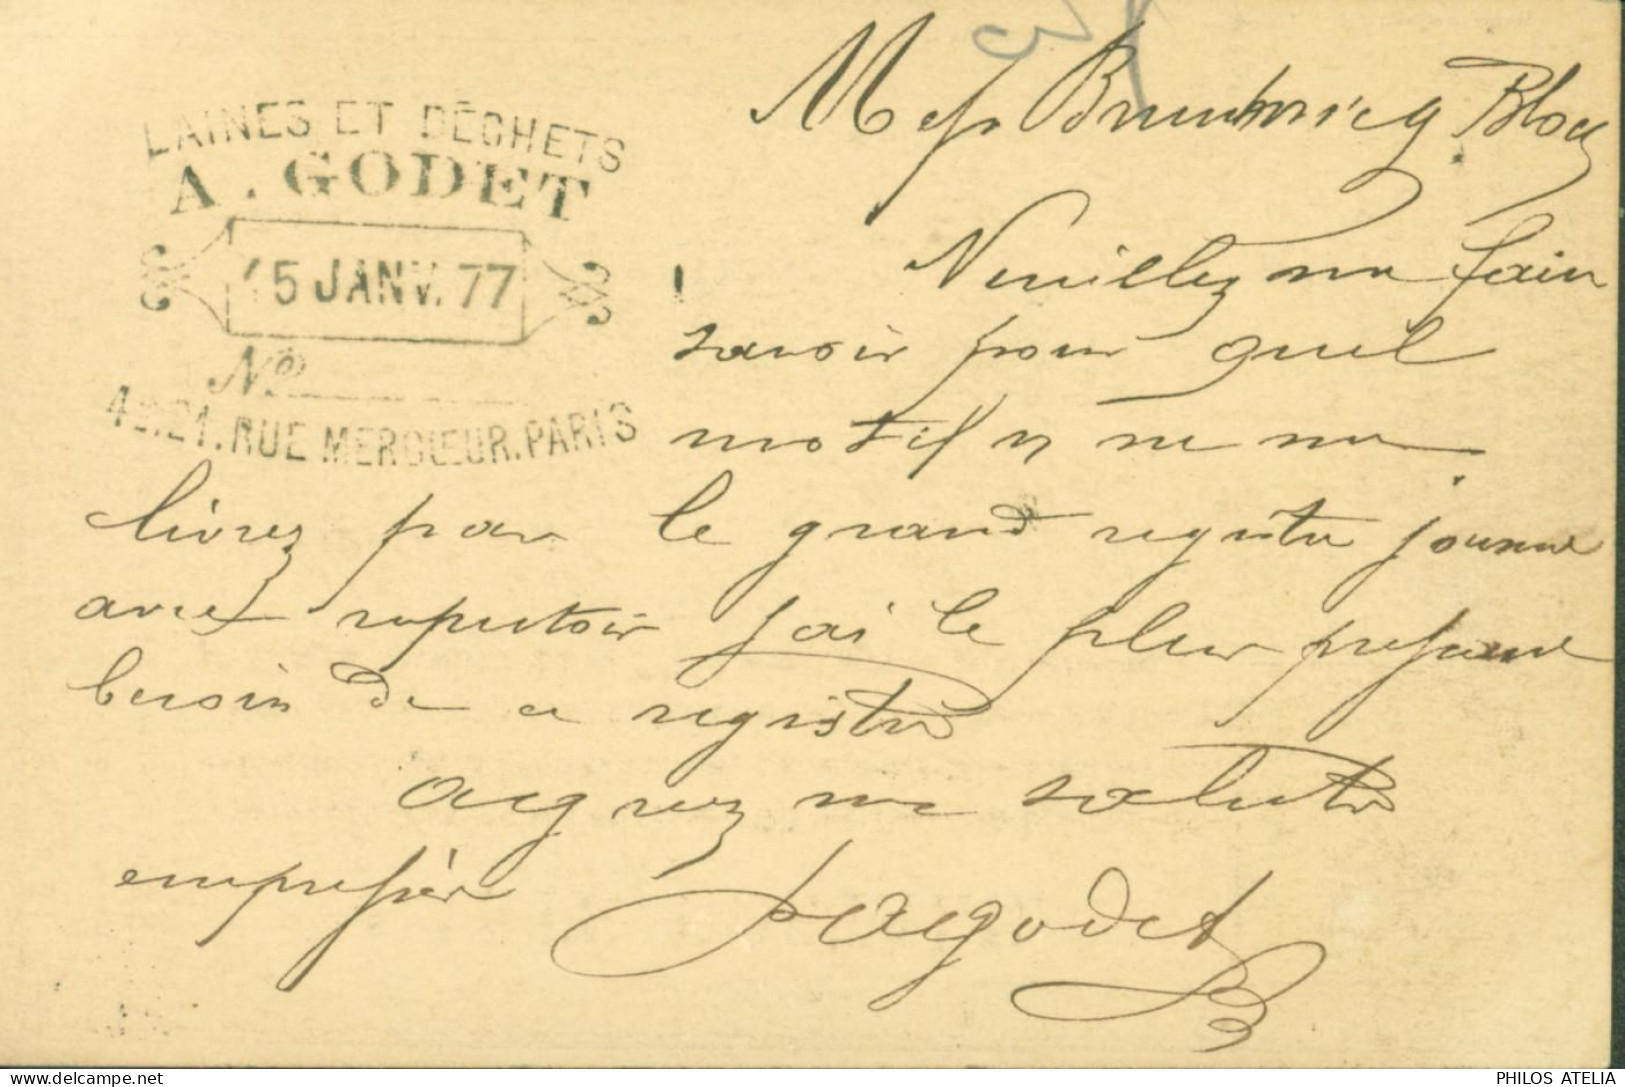 LAINES ET DÉCHETS
A. GODET
15 JANV. 77
No
RUE MERCŒUR. PARIS
Mess Bloq
Veuillez me fair
savoir pour quel
motif n ne me
livrez par le grand registre journal
avec repertoir j'ai le plus pressant
besoin de ce registre
agreez me salute
empressér
Godet
PHILOS ATELIA